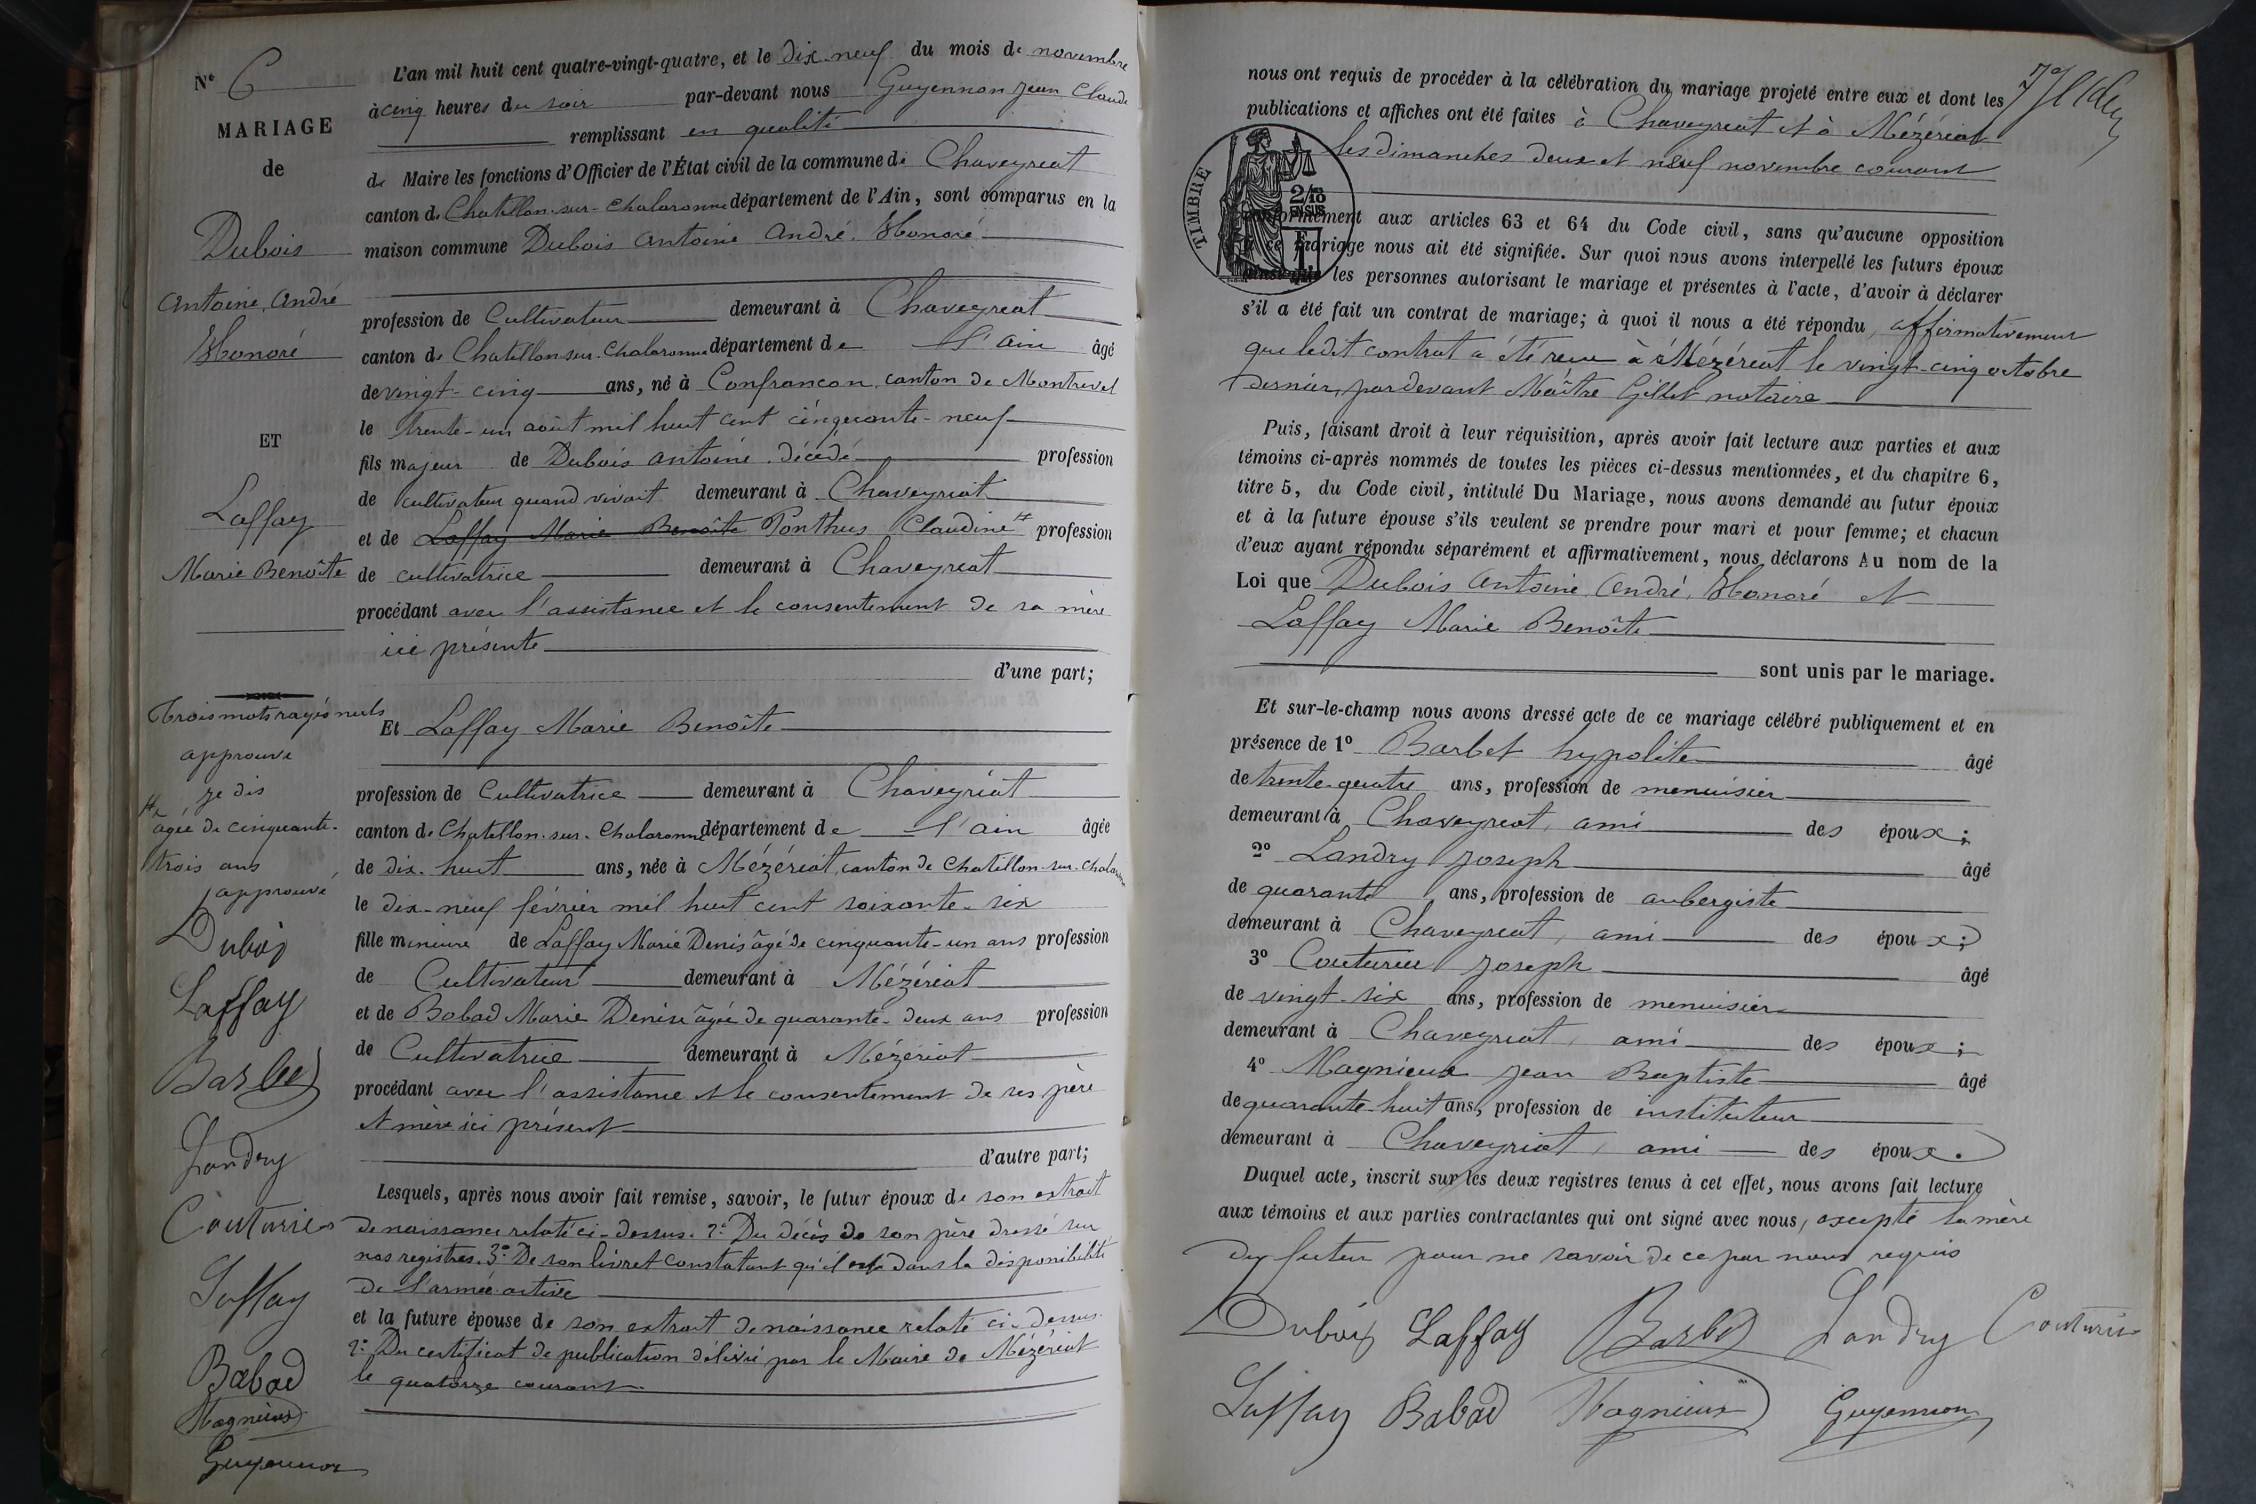 N° 6
MARIAGE
de
Dubois
Antoine, André
Honoré
ET
Laffay
Marie Benoîte
Trois mots rayés nuls
approuvé
je dis
âgée de cinquante-
trois ans
approuvé
Dubois
Laffay
Barbet
Landry
Couturier
Laffay
Babad
Magnieux
Guyennon
L'an mil huit cent quatre-vingt-quatre, et le dix-neuf du mois de novembre
à cinq heures du soir par-devant nous Guyennon Jean Claude
remplissant en qualité
de Maire les fonctions d'Officier de l'État civil de la commune de Chaveyriat
canton de Chatillon-sur-Chalaronne département de l'Ain, sont comparus en la
maison commune Dubois Antoine André, Honoré
profession de Cultivateur demeurant à Chaveyriat
canton de Chatillon-sur-Chalaronne département de l'ain âgé
de vingt-cinq ans, né à Confrancon, canton de Montrevel
le trente-un août mil huit cent cinquante-neuf
fils majeur de Dubois Antoine, décédé profession
de cultivateur quand vivait demeurant à Chaveyriat
et de Laffay Marie Benoîte Ponthus Claudine profession
de cultivatrice demeurant à Chaveyriat
procédant avec l'assistance et le consentement de sa mère
ici présente
d'une part;
Et Laffay Marie Benoîte
profession de Cultivatrice demeurant à Chaveyriat
canton de Chatillon-sur-Chalaronne département de l'ain âgée
de dix-huit ans, née à Mézériat, canton de Chatillon-sur-Chalaronne
le dix-neuf février mil huit cent soixante-six
fille mineure de Laffay Marie Denis âgé de cinquante-un ans profession
de Cultivateur demeurant à Mézériat
et de Babad Marie Denise âgée de quarante-deux ans profession
de Cultivatrice demeurant à Mézériat
procédant avec l'assistance et le consentement de ses père
et mère ici présent
d'autre part;
Lesquels, après nous avoir fait remise, savoir, le futur époux de son extrait
de naissance relaté ci-dessus. 2° Du décès de son père dressé sur
nos registres. 3° De son livret constatant qu'il est dans la disponibilité
de l'armée active
et la future épouse de son extrait de naissance relaté ci-dessus.
2° Du certificat de publication délivré par le Maire de Mézériat
le quatorze courant.
nous ont requis de procéder à la célébration du mariage projeté entre eux et dont les
publications et affiches ont été faites à Chaveyriat et à Mézériat
les dimanches deux et neuf novembre courant
TIMBRE
2/10
EN SUS
conformément aux articles 63 et 64 du Code civil, sans qu'aucune opposition
à ce mariage nous ait été signifiée. Sur quoi nous avons interpellé les futurs époux
ainsi que les personnes autorisant le mariage et présentes à l'acte, d'avoir à déclarer
s'il a été fait un contrat de mariage; à quoi il nous a été répondu, affirmativement
que ledit contrat a été reçu à Mézériat le vingt-cinq octobre
dernier, pardevant Maître Gillet notaire
Puis, faisant droit à leur réquisition, après avoir fait lecture aux parties et aux
témoins ci-après nommés de toutes les pièces ci-dessus mentionnées, et du chapitre 6,
titre 5, du Code civil, intitulé Du Mariage, nous avons demandé au futur époux
et à la future épouse s'ils veulent se prendre pour mari et pour femme; et chacun
d'eux ayant répondu séparément et affirmativement, nous déclarons Au nom de la
Loi que Dubois Antoine, André, Honoré et
Laffay Marie Benoîte
sont unis par le mariage.
Et sur-le-champ nous avons dressé acte de ce mariage célébré publiquement et en
présence de 1° Barbet hypolite âgé
de trente-quatre ans, profession de menuisier
demeurant à Chaveyriat, ami des époux;
2° Landry Joseph âgé
de quarante ans, profession de aubergiste
demeurant à Chaveyriat, ami des époux;
3° Couturier Joseph âgé
de vingt-six ans, profession de menuisier
demeurant à Chaveyriat, ami des époux;
4° Magnieux Jean Baptiste âgé
de quarante-huit ans, profession de instituteur
demeurant à Chaveyriat, ami des époux.
Duquel acte, inscrit sur les deux registres tenus à cet effet, nous avons fait lecture
aux témoins et aux parties contractantes qui ont signé avec nous, excepté la mère
du futur pour ne savoir de ce par nous requis
Dubois Laffay Barbet Landry Couturier
Laffay Babad Magnieux Guyennon